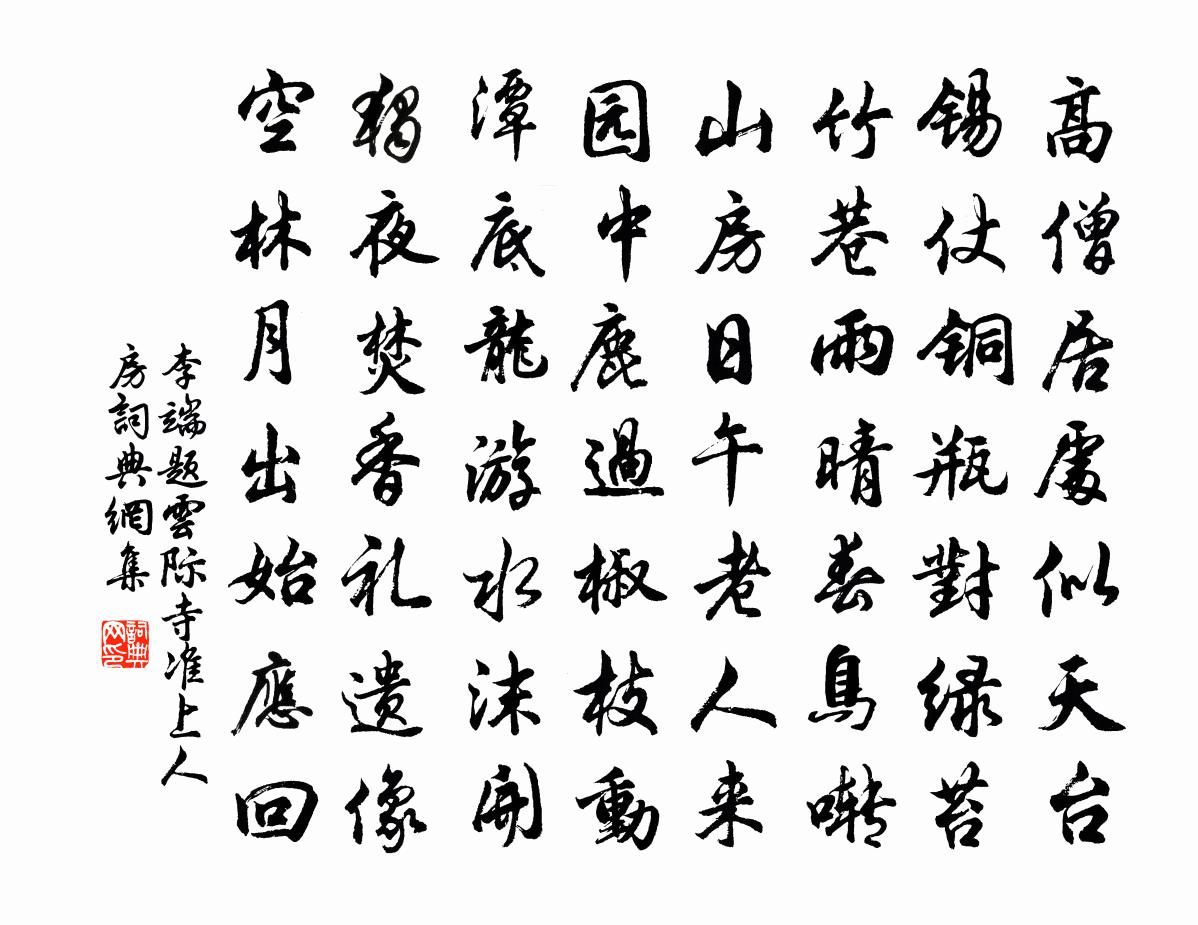 高僧居處似天台
锡仗铜瓶對緑苔
竹巷雨晴春鳥啭
山房日午老人来
园中鹿過椒枝動
潭底龍游水沫開
獨夜焚香礼遗像
空林月出始應回
李端題雲际寺准上人
房詞典網集
詞典网印